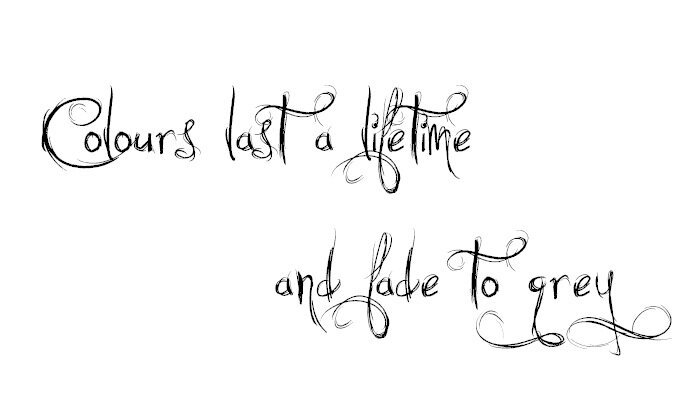 Colours last a lifetime
and fade to grey